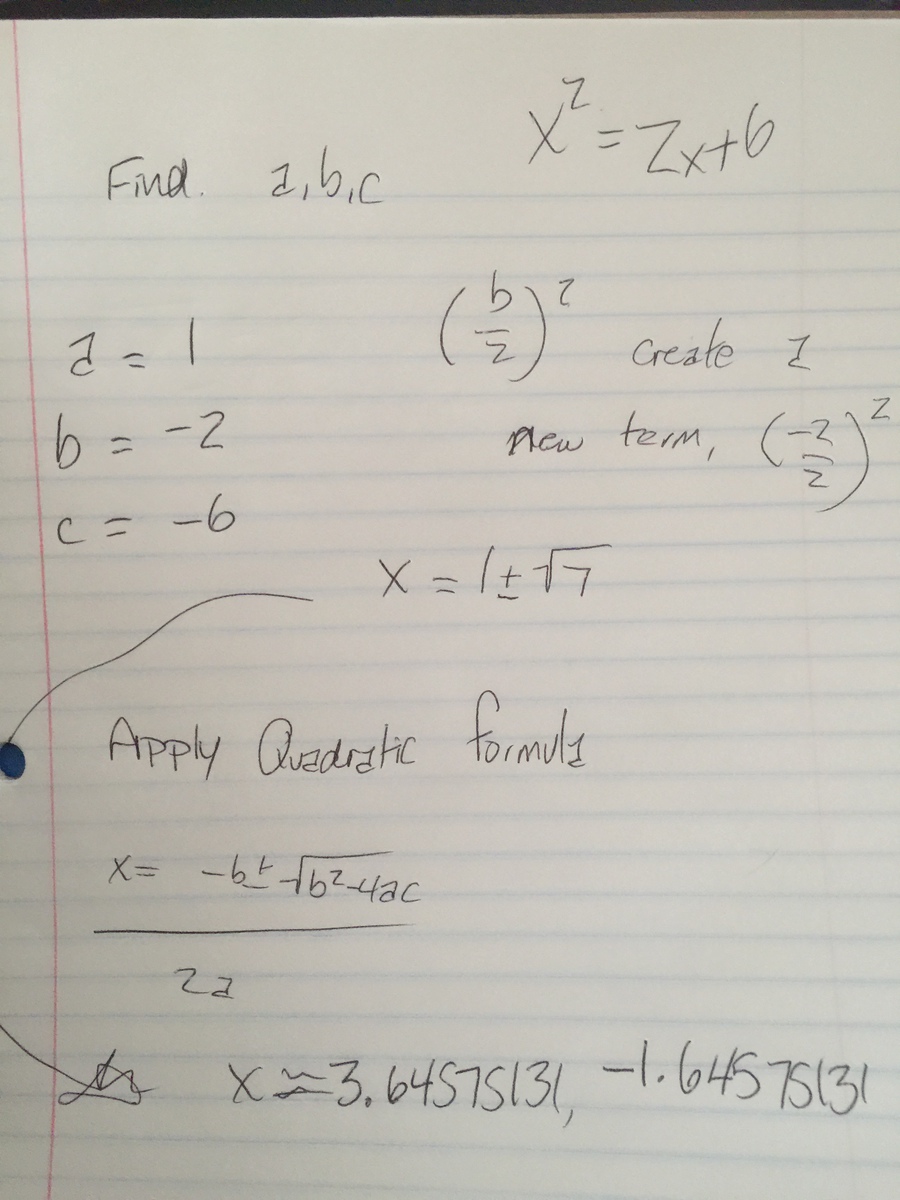 x² = 2x+6
Find. a,b,c
a = 1
(b/2)² create a
b = -2
new term, (-2/2)²
c = -6
x = 1±√7
Apply Quadratic formula
x= -b±√b²-4ac
2a
x≈3.64575131, -1.64575131